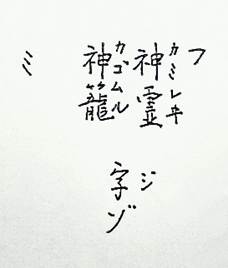 フ
カミレヰ
神霊
カゴムル
神籠
ジ
字ゾ
ミ